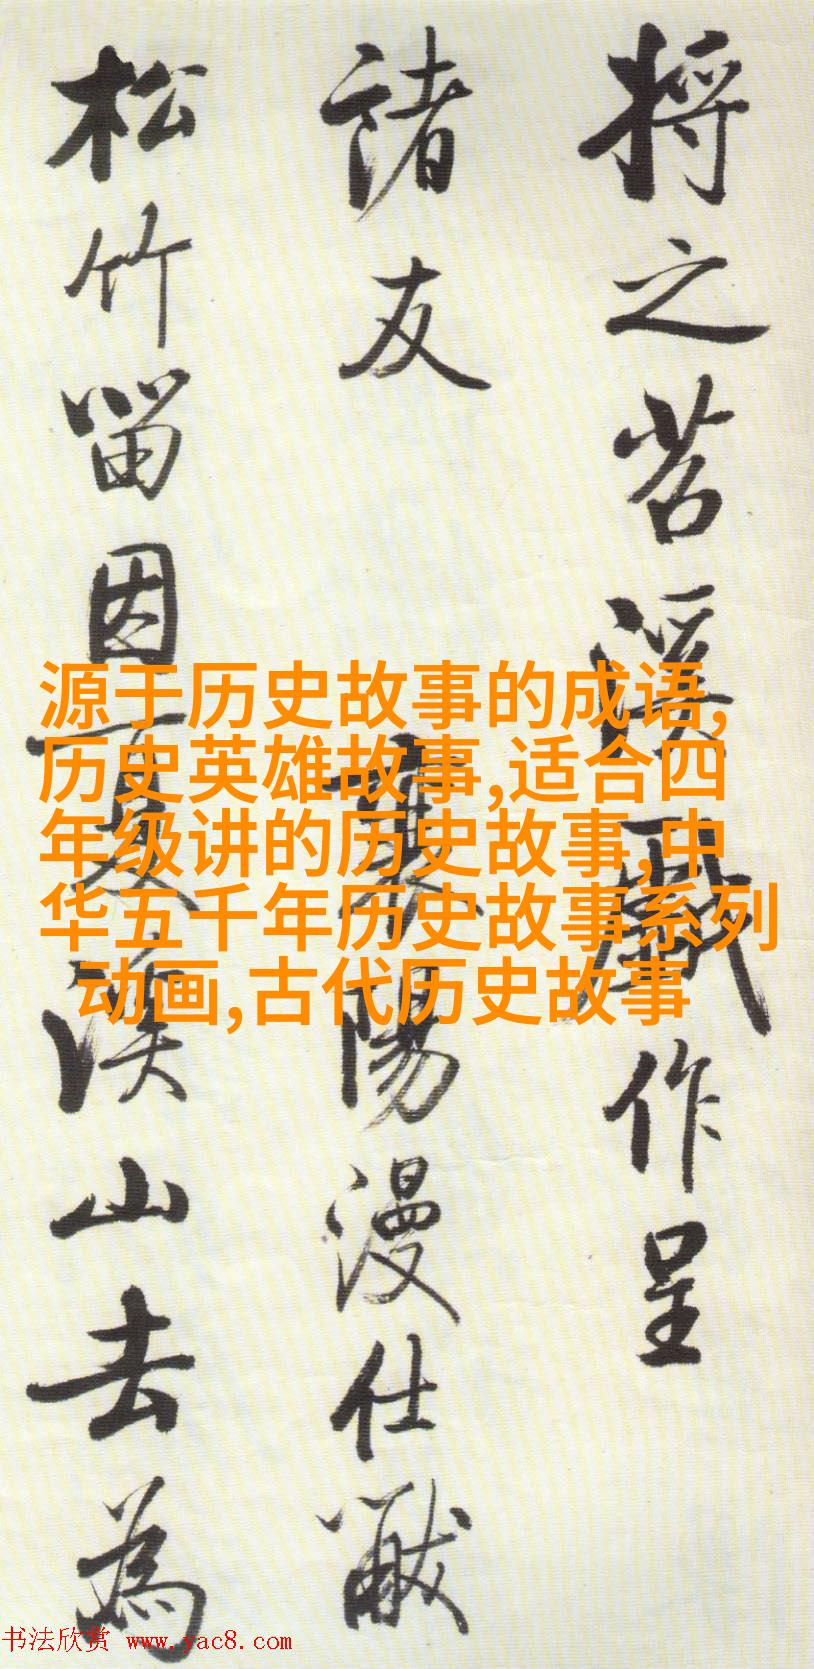 将之苕溪戲作呈
諸友
襄陽漫仕黻
松竹留因夏溪山去為
源于历史故事的成语,
历史英雄故事,适合四
年级讲的历史故事,中
华五千年历史故事系列
动画,古代历史故事
书法欣赏 www.yac8.com